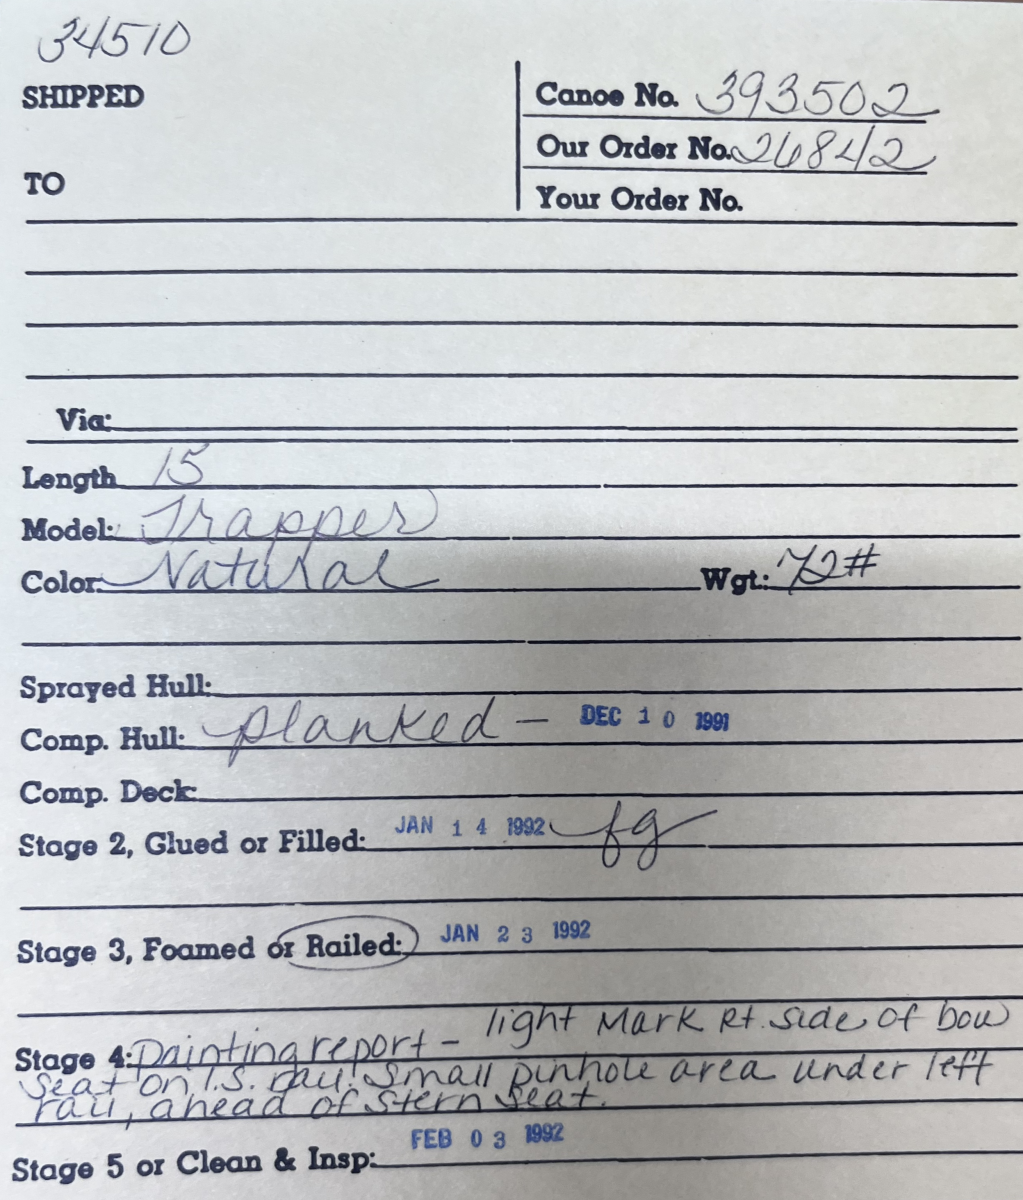 34510
SHIPPED
Canoe No. 393502
Our Order No. 26842
TO
Your Order No.
Via:
Length 15
Model: Trapper
Color: Natural Wgt.: 72#
Sprayed Hull:
Comp. Hull: planked - DEC 10 1991
Comp. Deck:
Stage 2, Glued or Filled: JAN 14 1992 fg
Stage 3, Foamed or Railed: JAN 23 1992
light Mark Rt. side of bow
Stage 4: Painting report -
seat on I.S. rail. Small pinhole area under left
rail, ahead of stern seat.
FEB 03 1992
Stage 5 or Clean & Insp: